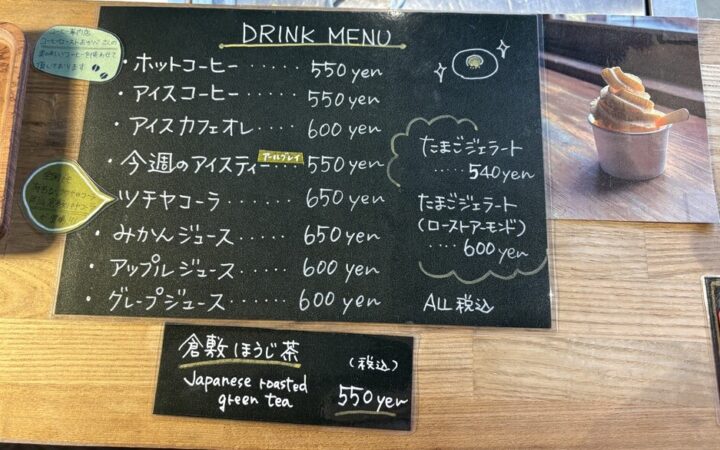 DRINK MENU
・ホットコーヒー・・・・・550yen
・アイスコーヒー・・・・・550yen
・アイスカフェオレ・・・・600yen
・今週のアイスティー アールグレイ 550yen
ツチヤコーラ・・・・・650yen
・みかんジュース・・・・・650yen
・アップルジュース・・・・・600yen
・グレープジュース・・・・・600yen
たまごジェラート
・・・・・540yen
たまごジェラート
(ローストアーモンド)
・・・・600yen
ALL 税込
倉敷ほうじ茶
(税込)
Japanese roasted
green tea
550yen